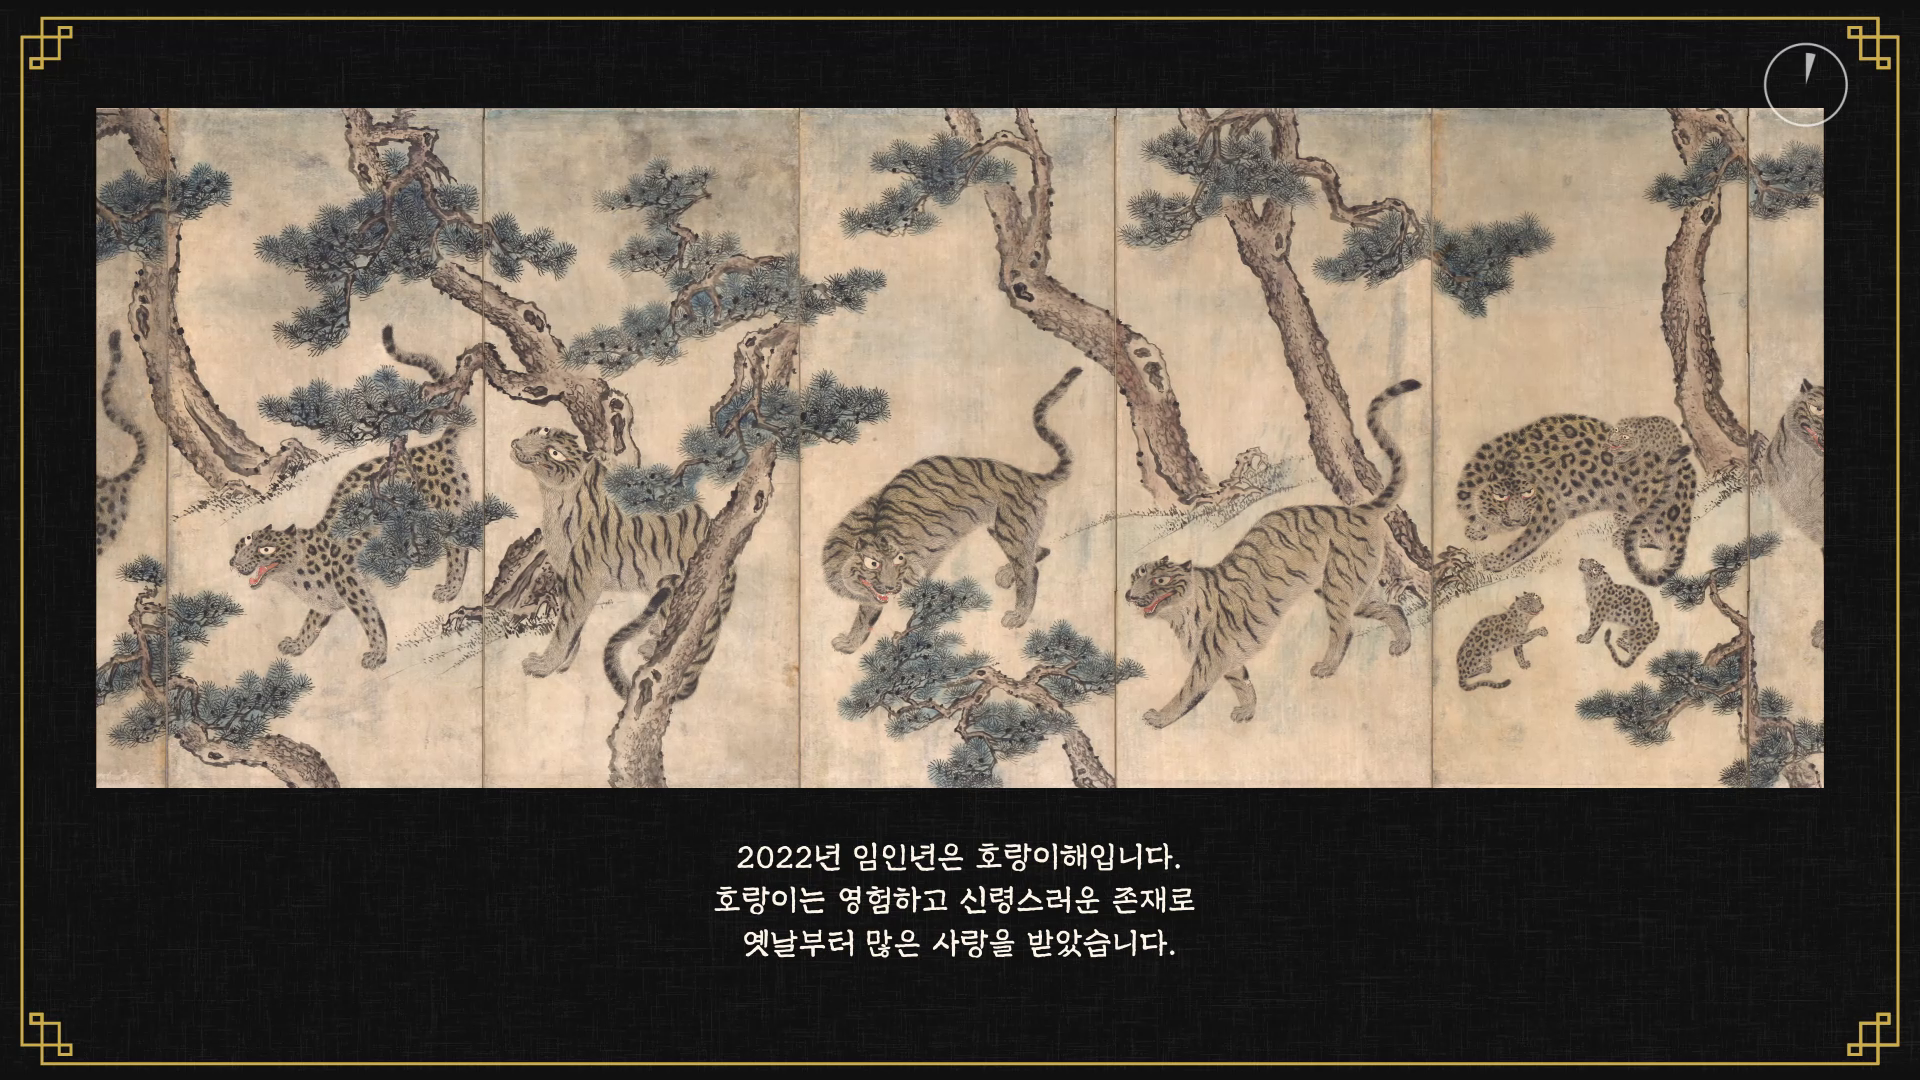 2022년 임인년은 호랑이해입니다.
호랑이는 영험하고 신령스러운 존재로
옛날부터 많은 사랑을 받았습니다.